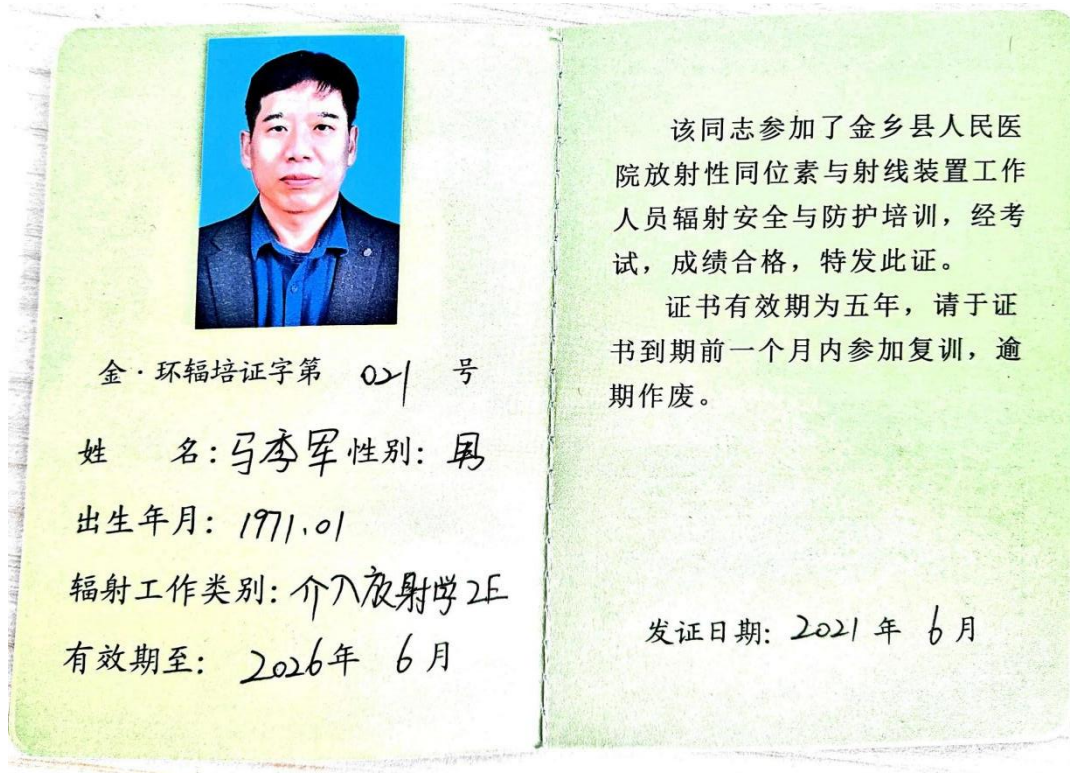 金·环辐培证字第 021 号
姓 名:马季军 性别:男
出生年月:1971.01
辐射工作类别:介入放射学2E
有效期至: 2026年 6月
该同志参加了金乡县人民医
院放射性同位素与射线装置工作
人员辐射安全与防护培训，经考
试，成绩合格，特发此证。
证书有效期为五年，请于证
书到期前一个月内参加复训，逾
期作废。
发证日期: 2021年 6月